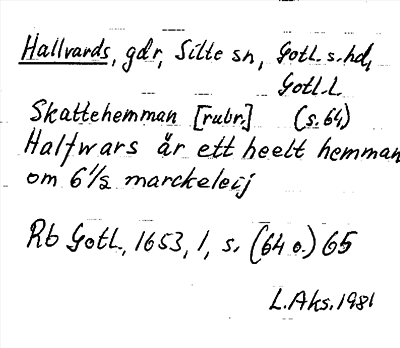 Hallvards, gdr, Silte sn, Gotl. s. hd,
Gotl. L
Skattehemman [rubr.] (s. 64)
Halfwars är ett heelt hemman
om 6 1/2 marckeleij
Rb Gotl., 1653, 1, s. (64 o.) 65
L. Aks. 1981